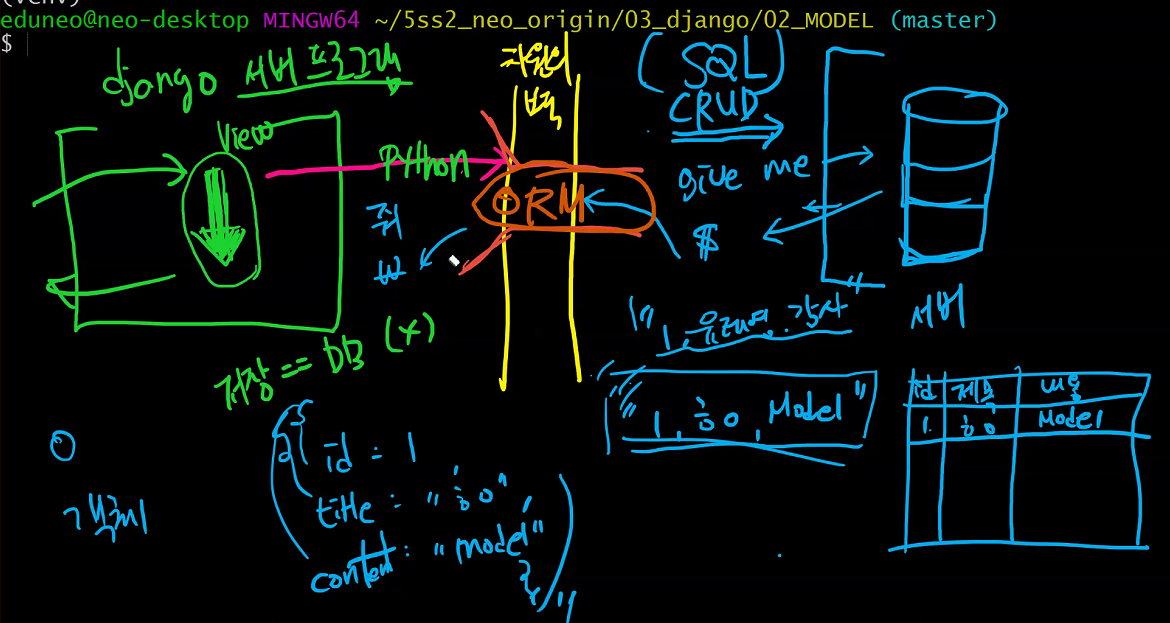 (venv)
eduneo@neo-desktop MINGW64 ~/5ss2_neo_origin/03_django/02_MODEL (master)
$
django 서버 프로그래밍
View
Python
줘
₩
저장 == DB (x)
ORM
SQL
CRUD
give me
$
서버
"1, ㅎㅇ, Model"
id 제목 내용
1. ㅎㅇ Model
id : 1
title : "ㅎㅇ",
content : "model"
}
객체